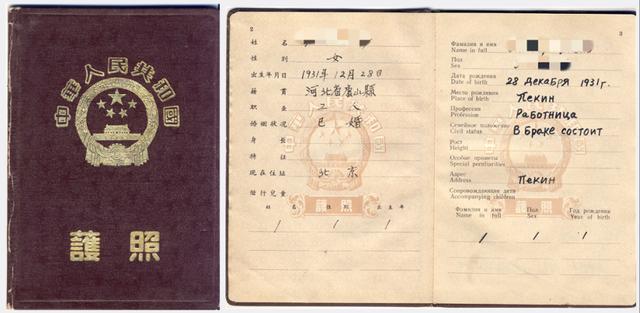 中華人民共和國
護照
2
姓名
性別 女
出生年月日 1931年12月28日
籍貫 河北省
職業 工人
婚姻狀況 已婚
身長
特徵
現在住址 北京
偕行兒童
姓名 性別 出生年
/ / /
護照
3
Фамилия и имя
Name in full
Пол
Sex
Дата рождения
Date of birth 28 декабря 1931г.
Место рождения
Place of birth Пекин
Профессия
Profession Работница
Семейное положение
Civil status В браке состоит
Рост
Height
Особые приметы
Special peculiarities
Адрес
Address Пекин
Сопровождающие дети
Accompanying children
Фамилия и имя Пол Год рождения
Name in full Sex Year of birth
/ / /
護照